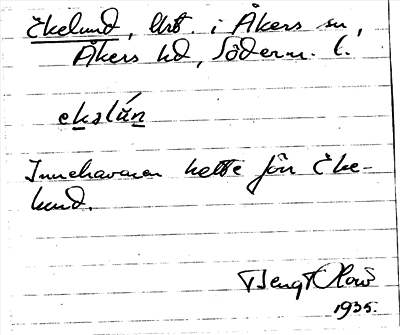 Ekelund, Urt. i Åkers sn,
Åkers hd, Söderm. l.
ekslún
Innehavaren hette förr Eke-
lund.
Bengt Olow
1935.